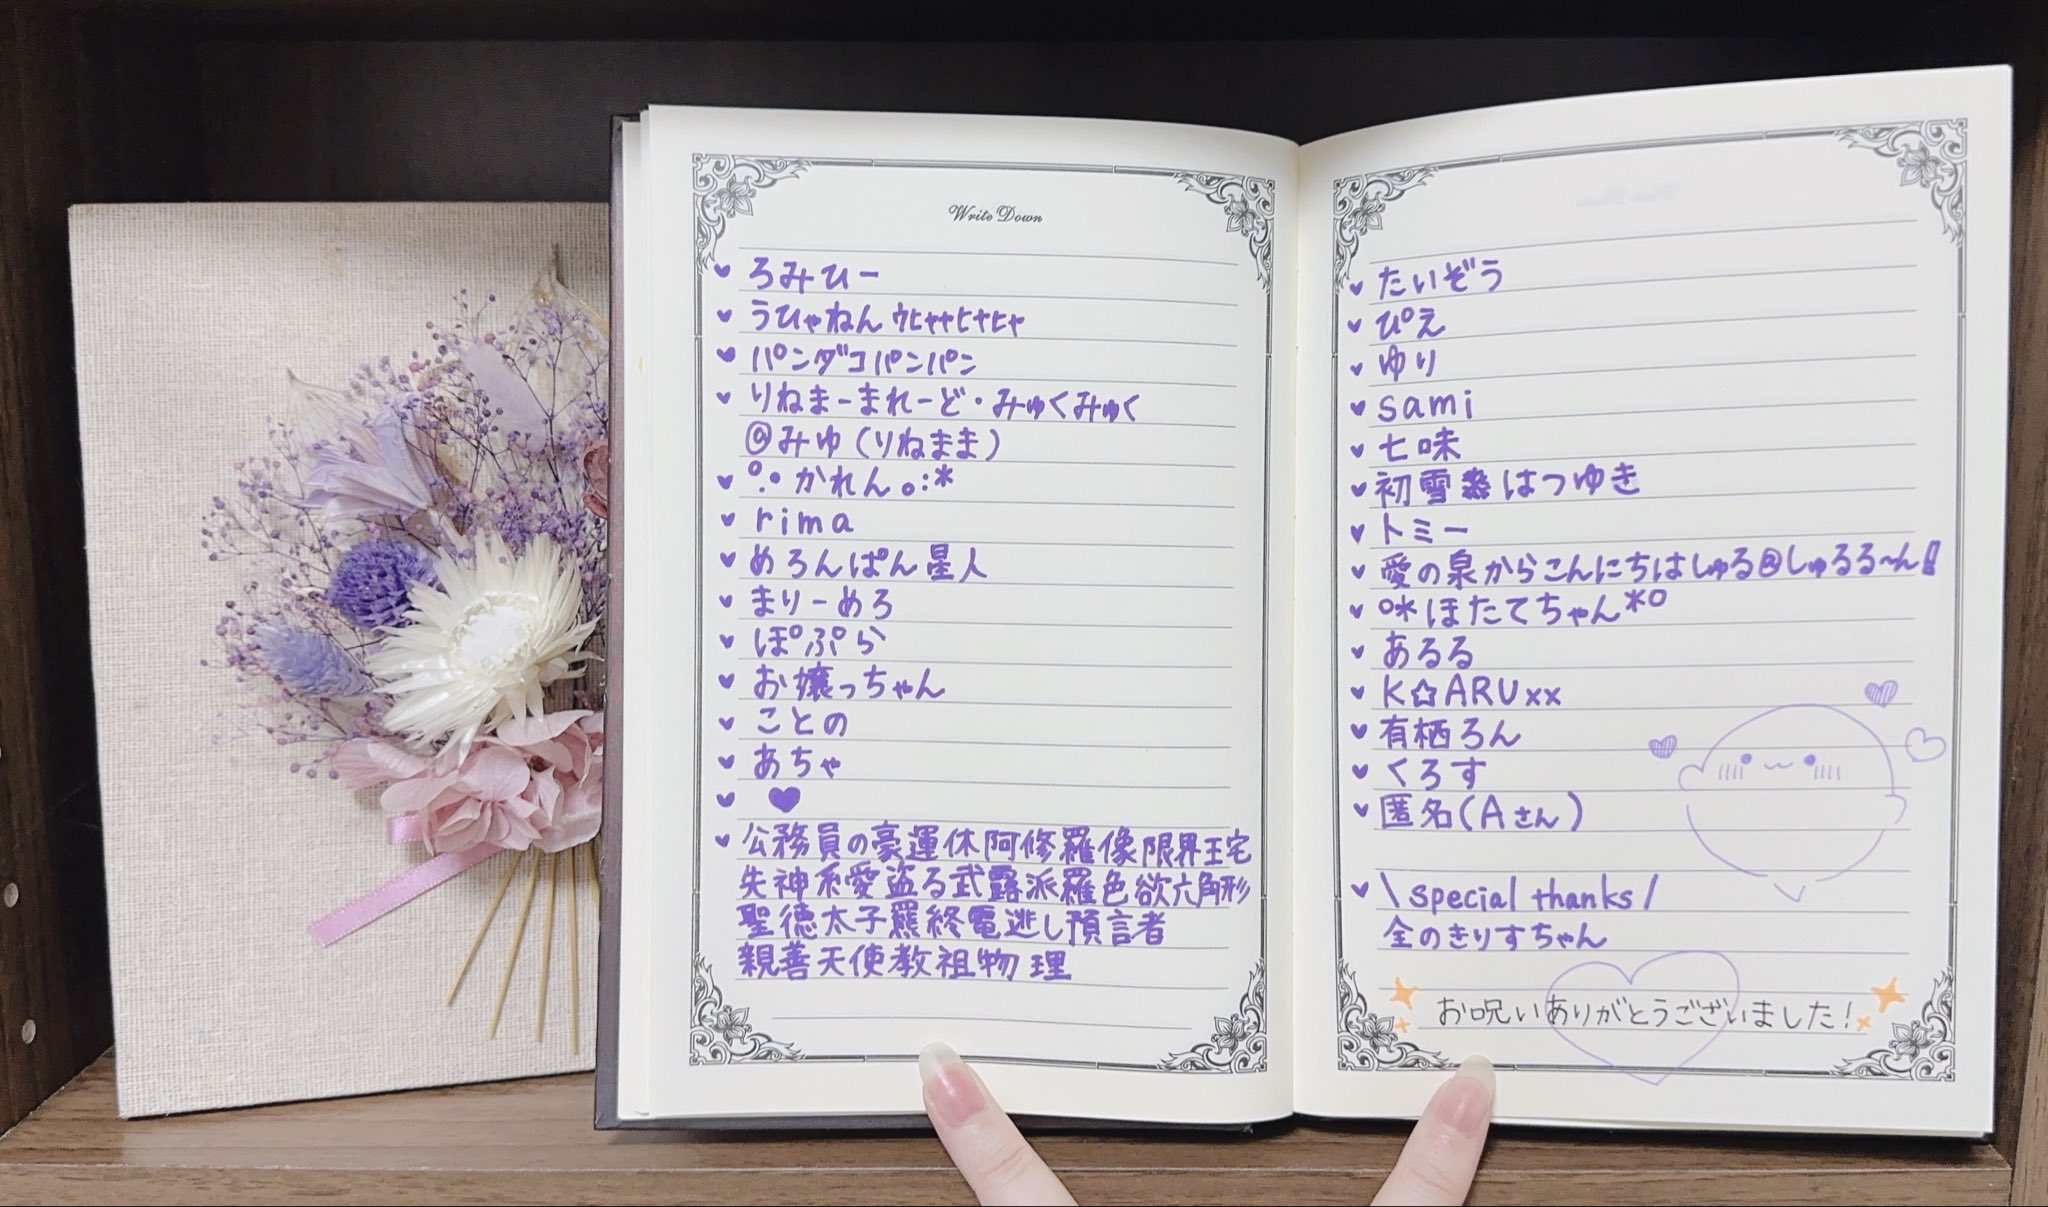 Write Down
♥ ろみひー
♥ うひゃねん ｳﾋｬｬﾋｬﾋｬ
♥ パンダコパンパン
♥ りねまーまれーど・みゅくみゅく
@みゆ(りねまま)
♥ °.• かれん 。:*
♥ rima
♥ めろんぱん星人
♥ まりーめろ
♥ ぽぷら
♥ お嬢っちゃん
♥ ことの
♥ あちゃ
♥ ♥
♥ 公務員の豪運休阿修羅像限界王宅
失神系愛盗る武露派羅色欲六角形
聖徳太子羅終電逃し預言者
親善天使教祖物理
♥ たいぞう
♥ ぴえ
♥ ゆり
♥ sami
♥ 七味
♥ 初雪 はつゆき
♥ トミー
♥ 愛の泉からこんにちはしゅる@しゅるる〜ん!
♥ °*ほたてちゃん*°
♥ あるる
♥ K☆ARUxx
♥ 有栖ろん
♥ くろす
♥ 匿名(Aさん)
♥ \special thanks/
全のきりすちゃん
お呪いありがとうございました!